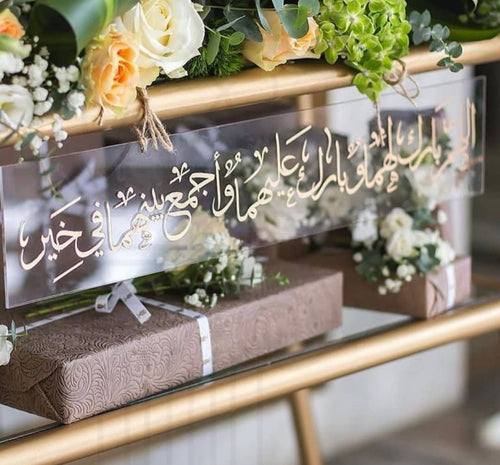 اللهم بارك لهما وبارك عليهما وأجمع بينهما في خير